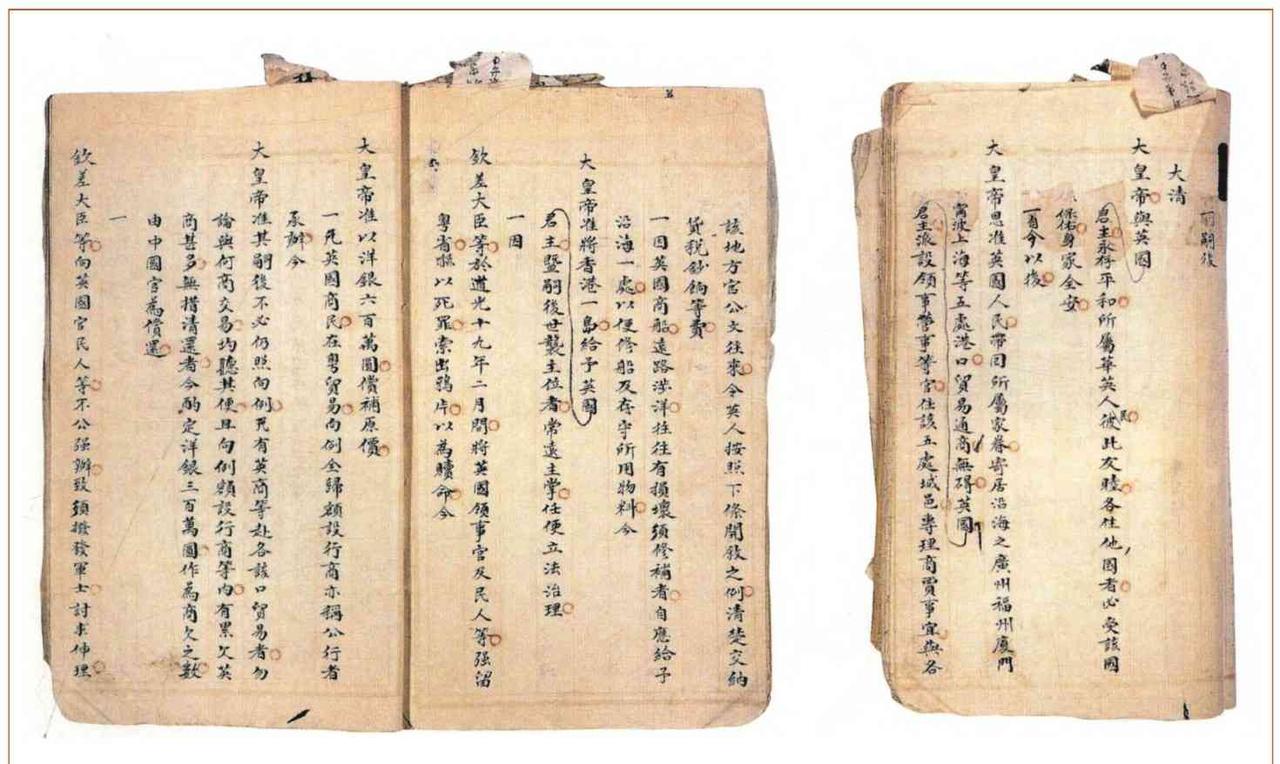 嗣後
大清
大皇帝與英國
君主永存平和所屬華英人民彼此友睦各住他國者必受該國
保佑身家全安
一自今以後
大皇帝恩准英國人民帶同所屬家眷寄居沿海之廣州福州廈門
甯波上海等五處港口貿易通商無碍英國
君主派設領事管事等官住該五處城邑專理商賈事宜與各
該地方官公文往來令英人按照下條開敘之例清楚交納
貨稅鈔餉等費
一因英國商船遠路涉洋往往有損壞須修補者自應給予
沿海一處以便修船及存守所用物料今
大皇帝准將香港一島給予英國
君主暨嗣後世襲主位者常遠主掌任便立法治理
一因
欽差大臣等於道光十九年二月間將英國領事官及民人等强留
粵省嚇以死罪索出鴉片以為贖命今
大皇帝准以洋銀六百萬圓償補原價
一凡英國商民在粵貿易向例全歸額設行商亦稱公行者
承辦今
大皇帝准其嗣後不必仍照向例凡有英商等赴各該口貿易者勿
論與何商交易均聽其便且向例額設行商等內有累欠英
商甚多無措清還者今酌定洋銀三百萬圓作為商欠之數
由中國官為償還
一
欽差大臣等向英國官民人等不公强辦致須撥發軍士討求伸理